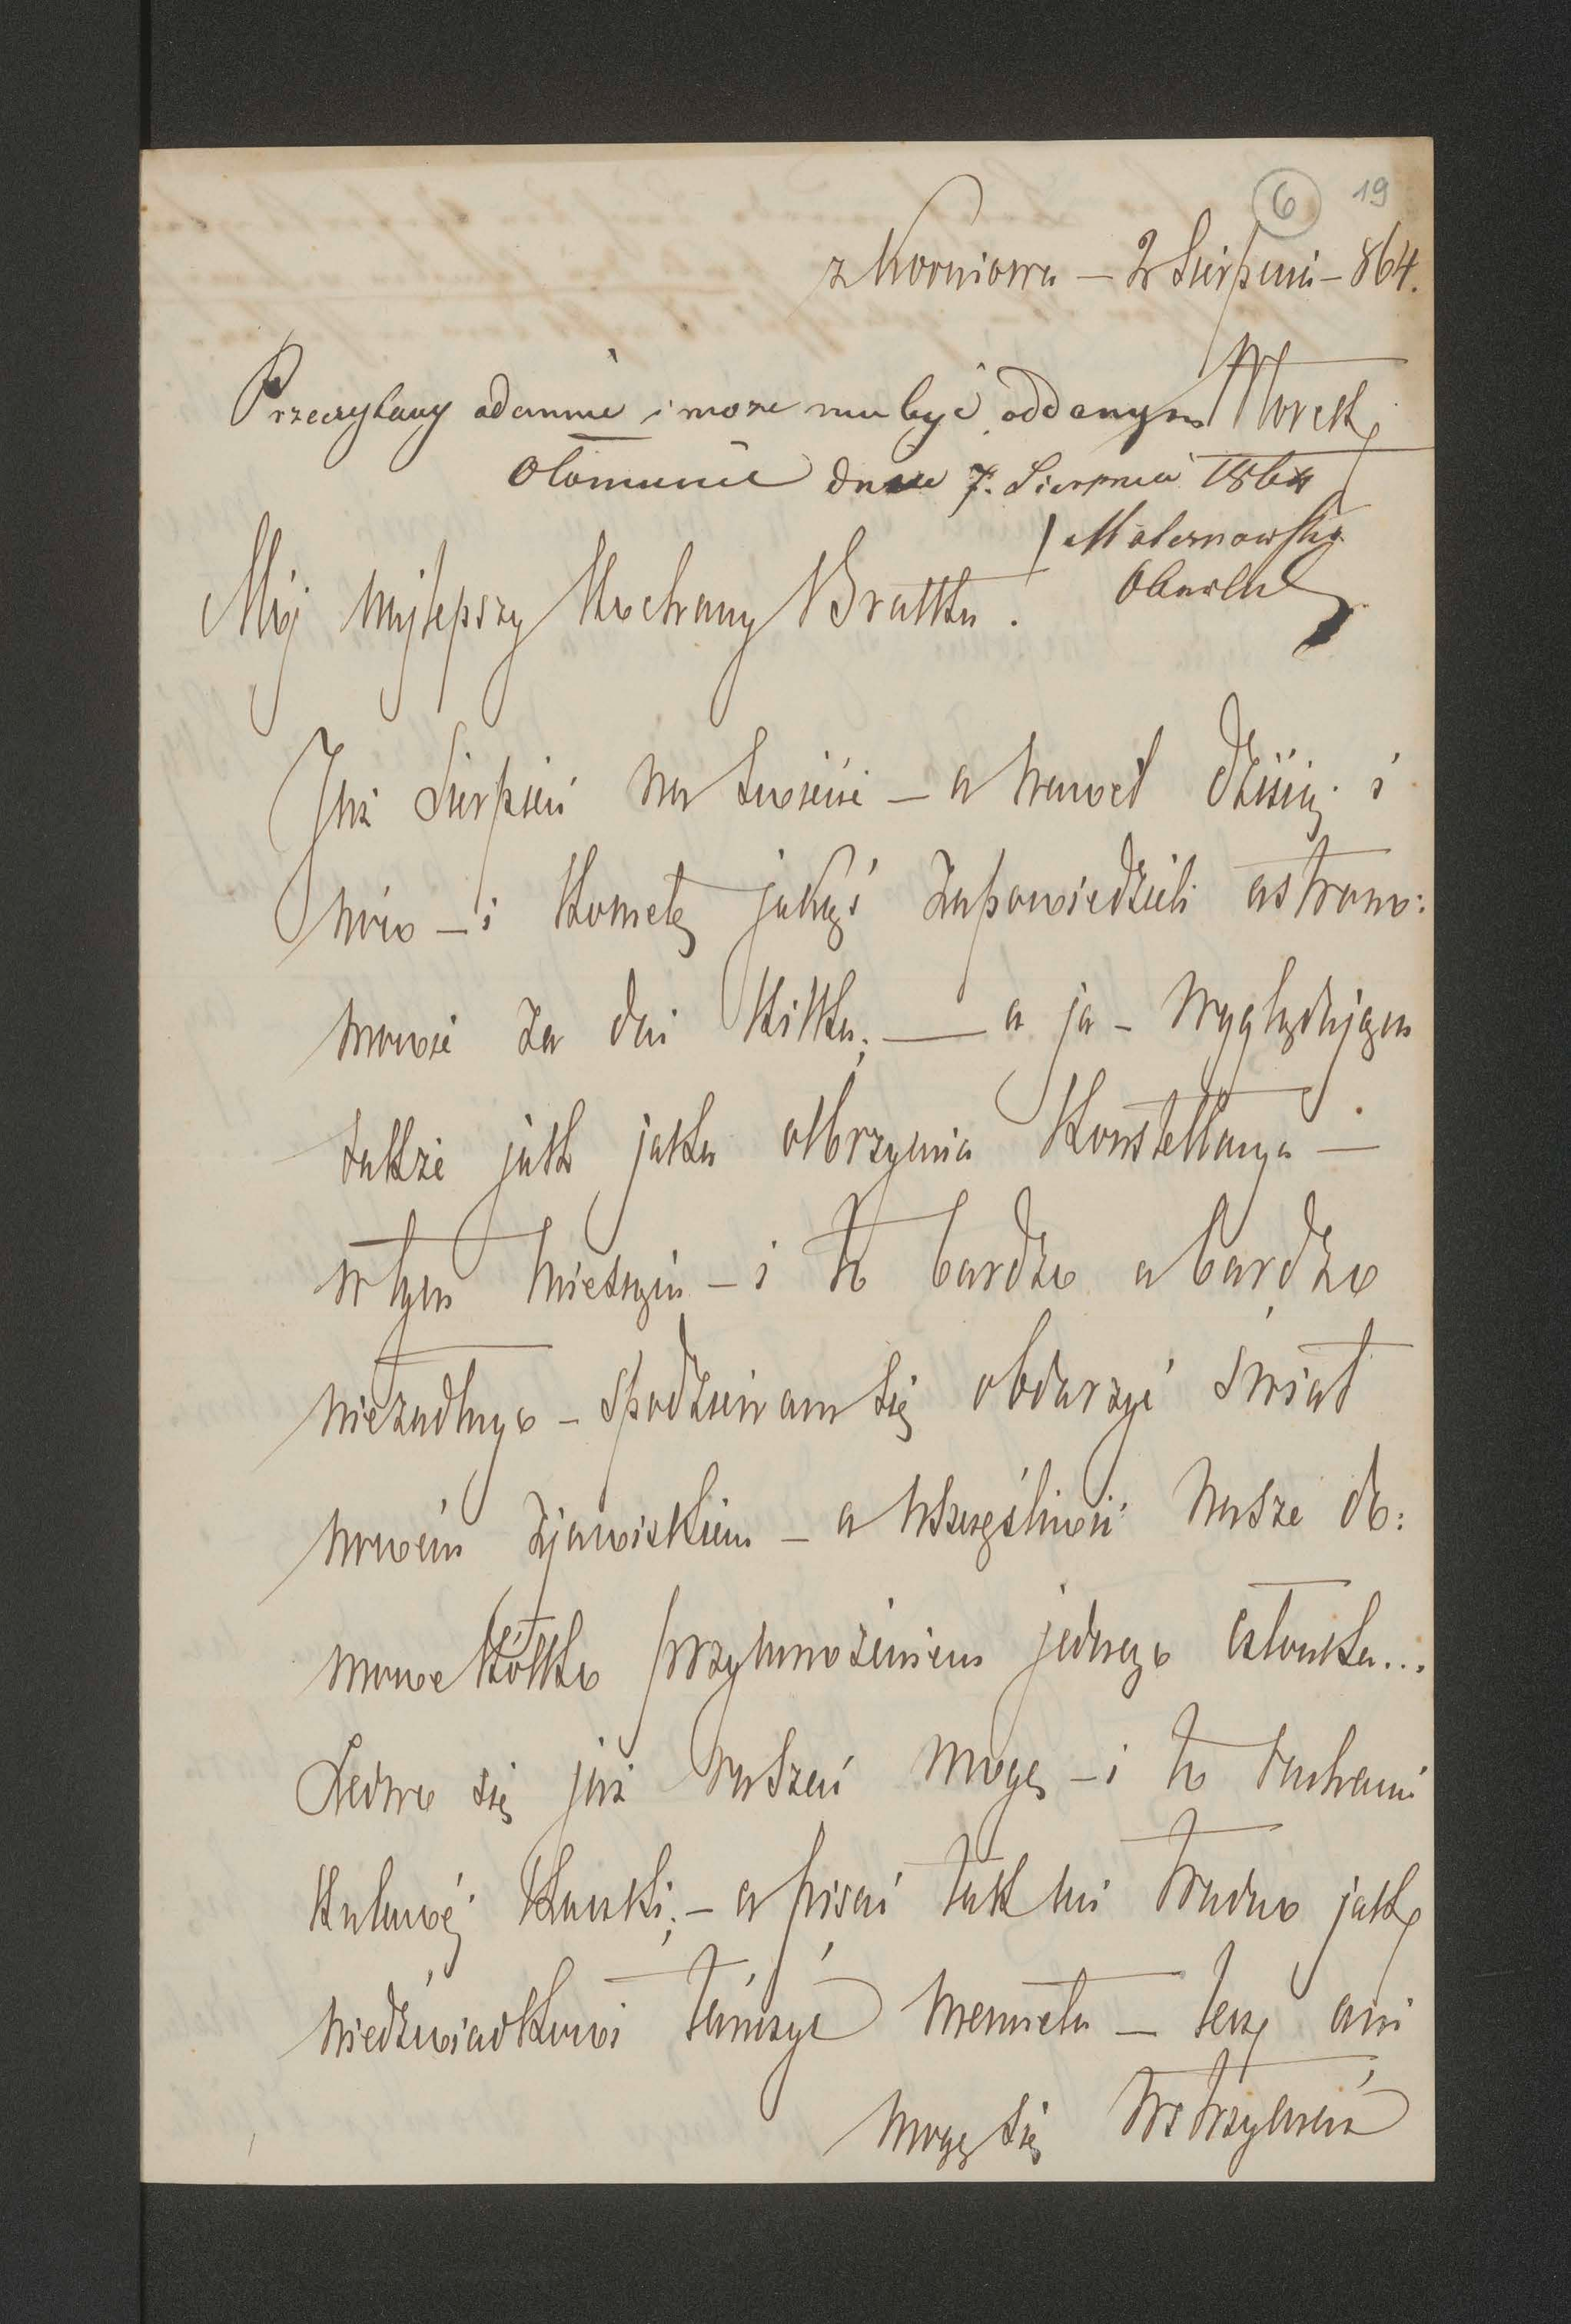 6 19
z Korniowa – 2 Sierpnia – 864.
Wtorek
Przeczytany odemnie i może mu być oddanym
Ołomuniec dnia 7. Sierpnia 1864
Maternowski
Mój najlepszy Kochany Bratku.
Już Sierpień na świecie – a nawet dzisiaj i
nów – i Kometę jakąś zapowiedzieli astrono:
mowie za dni kilka; — a ja – wyglądając
także jak jaka olbrzymia Konstellacya —
w tym miesiącu – i to bardzo a bardzo
niezadługo – spodziewam się obdarzyć świat
nowém zjawiskiem – a uszczęśliwić nasze do:
mowe kółko przymnożeniem jednego członka...
Ledwo się już ruszać mogę – i to ruchami
kulawéj kaczki; – a pisać tak mi trudno jak
niedźwiadkowi tańczyć menueta – lecz ani
mogę się wstrzymać